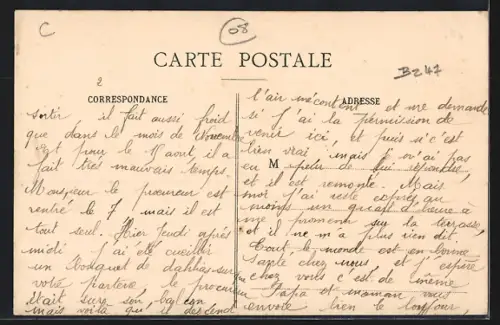 C
08
CARTE POSTALE
B247
2
CORRESPONDANCE
ADRESSE
M
sortir il fait aussi froid
que dans le mois de Novembre
et pour le 15 avut il a
fait très mauvais temps.
Monsieur le procureur est
rentré le 7 mais il est
tout seul. Hier Jeudi après
midi j'ai été cueillir
un bouquet de dahlias sur
votre parterre, le procureur
était sur son balcon
mais voila qu'il descend
l'air mécontent et me demande
si j'ai la permission de
venir ici, et puis c'est
bien vrai mais je n'ai pas
eu peur de lui répondre,
et il est remonté. Mais
moi j'ai resté exprès au
moins un quart d'heure à
me promener sur la terrasse,
et il ne m'a plus rien dit.
Tout le monde est en bonne
santé chez nous et j'espère
chez vous c'est de même
Papa et maman vous
envoie bien le bonjour,